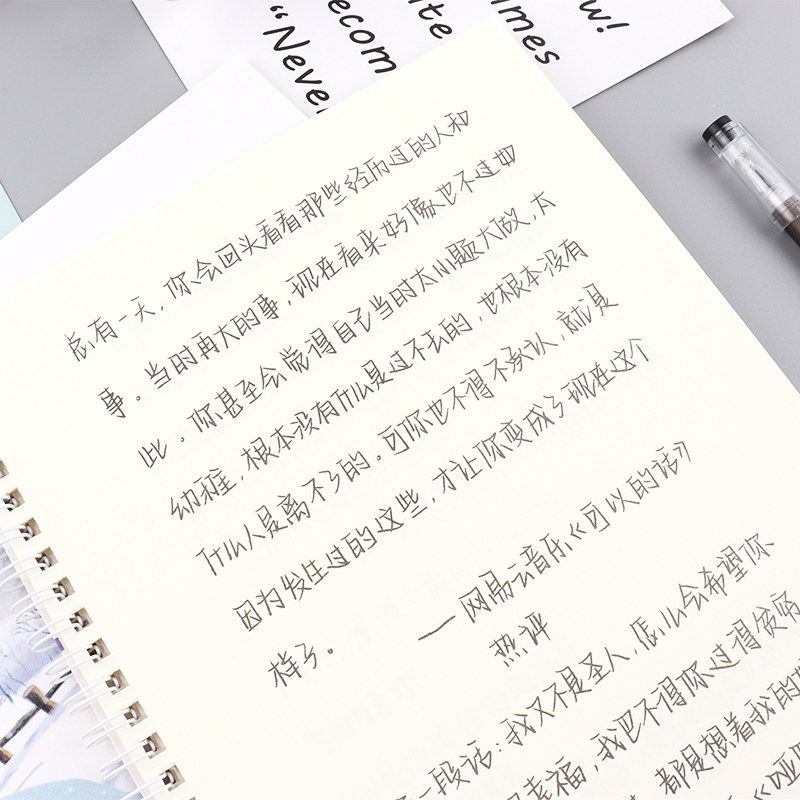 ow!
ecom
ite
imes
"Neve
总有一天,你会回头看看那些经历过的人和
事。当时再大的事,现在看来好像也不过如
此。你甚至会觉得自己当时太小题大做,太
幼稚,根本没有什么是过不去的,也根本没有
什么人是离不了的。可你也不得不承认,就是
因为发生过的这些,才让你变成了现在这个
样子。
—网易云音乐《可以的话》
热评
一段话:我又不是圣人,怎么会希望你
幸福,我巴不得你过得贫穷
都是想着我的